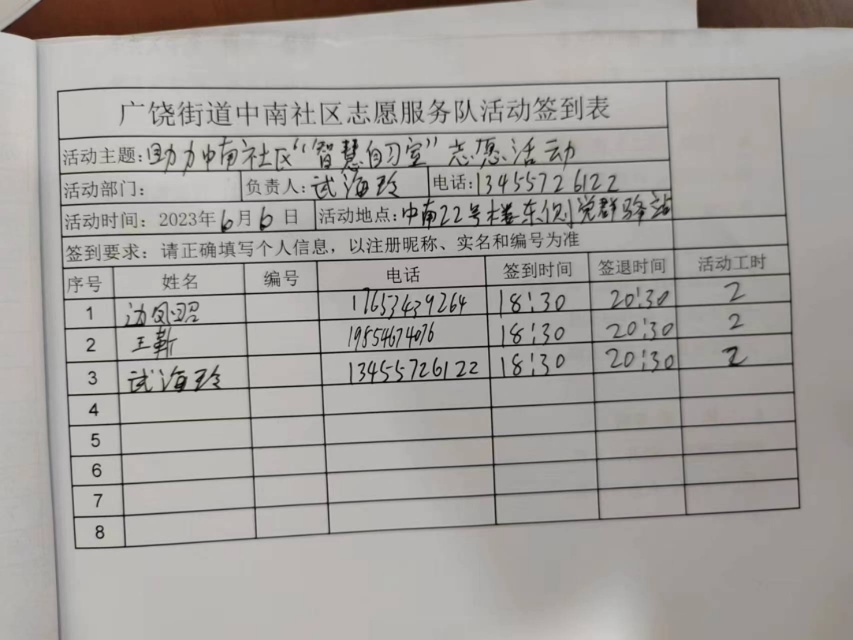 广饶街道中南社区志愿服务队活动签到表
活动主题：助力中南社区“智慧自习室”志愿活动
活动部门： 负责人：武海玲 电话：13455726122
活动时间：2023年6月6日 活动地点：中南22号楼东侧党群驿站
签到要求：请正确填写个人信息，以注册昵称、实名和编号为准
序号 姓名 编号 电话 签到时间 签退时间 活动工时
1 边凤昭 17653439264 18:30 20:30 2
2 王新 19554674076 18:30 20:30 2
3 武海玲 13455726122 18:30 20:30 2
4
5
6
7
8